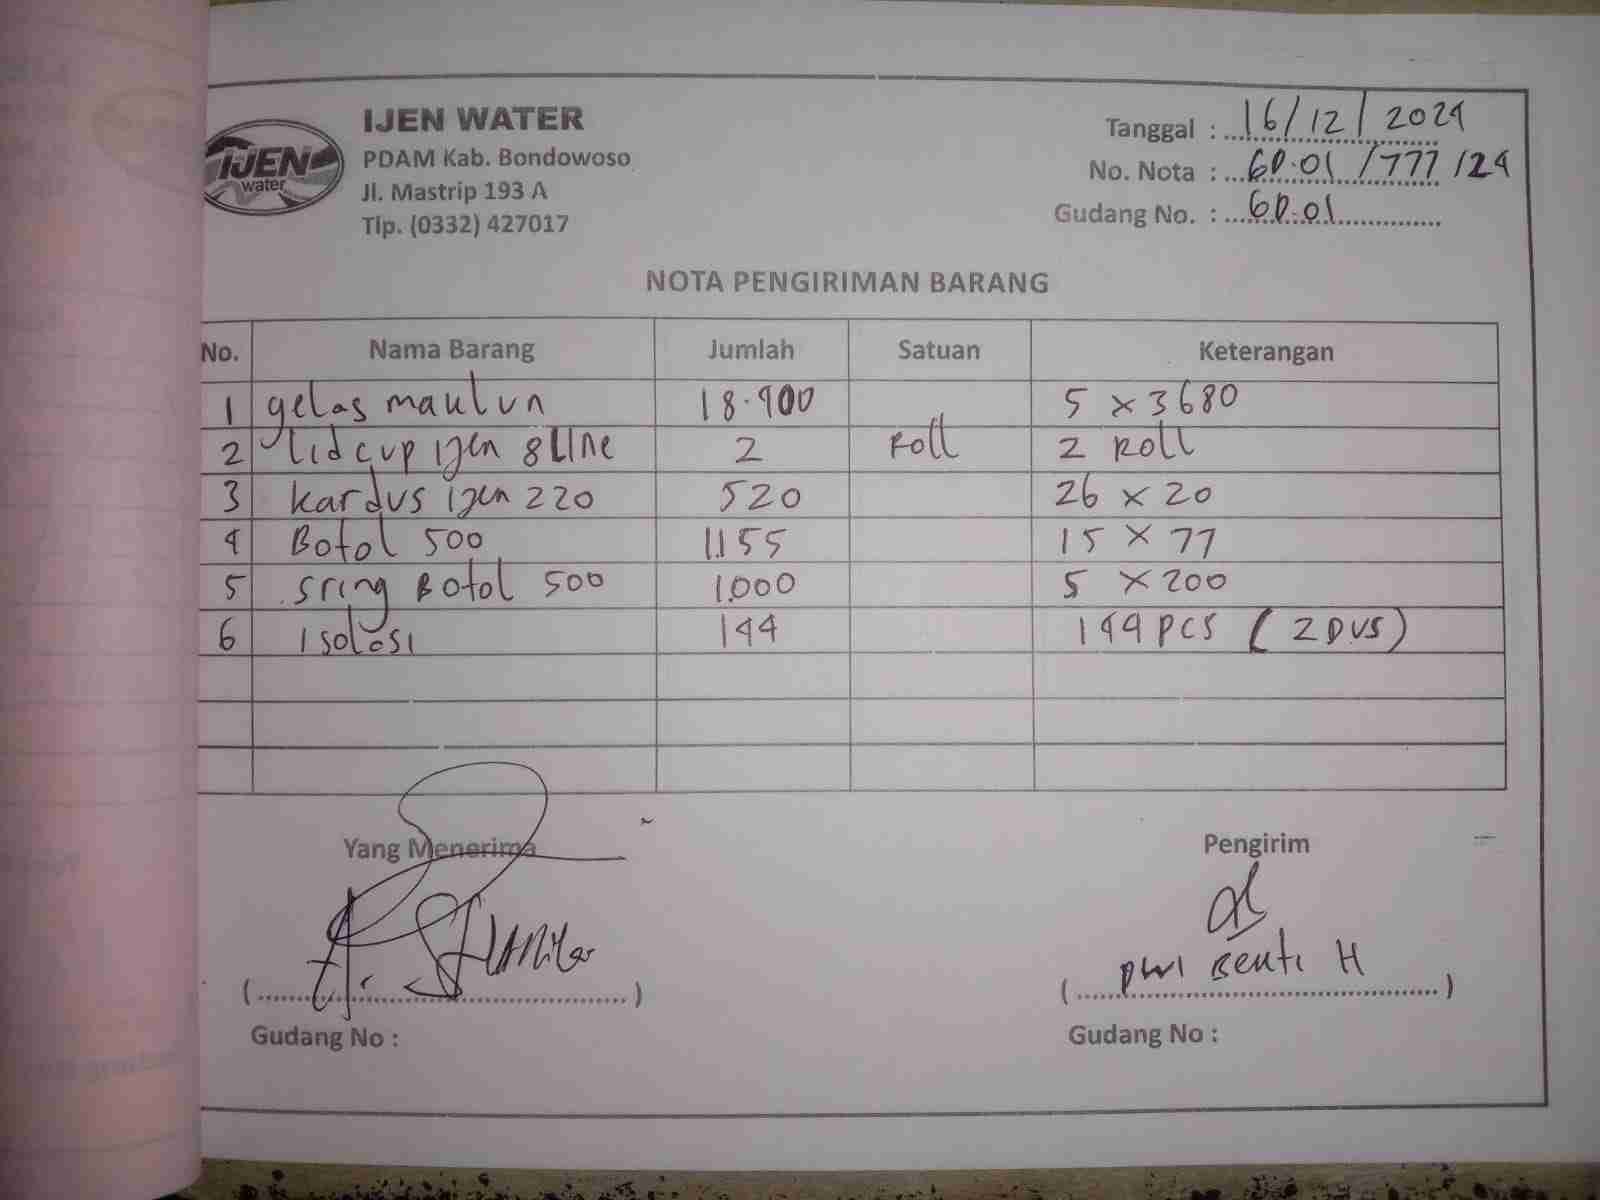 IJEN WATER
PDAM Kab. Bondowoso
Jl. Mastrip 193 A
Tlp. (0332) 427017
IJEN
water
Tanggal : 16/12/2024
No. Nota : GD.01 /777 /24
Gudang No. : GD.01
NOTA PENGIRIMAN BARANG
No. Nama Barang Jumlah Satuan Keterangan
1 gelas maulun 18.400 5 x 3680
2 Lid cup ijen 8 LINE 2 Roll 2 Roll
3 kardus ijen 220 520 26 x 20
4 Botol 500 1.155 15 x 77
5 sring Botol 500 1.000 5 x 200
6 Isolasi 144 144 PCS (2 DUS)
Yang Menerima Pengirim
( ) ( H )
Gudang No : Gudang No :